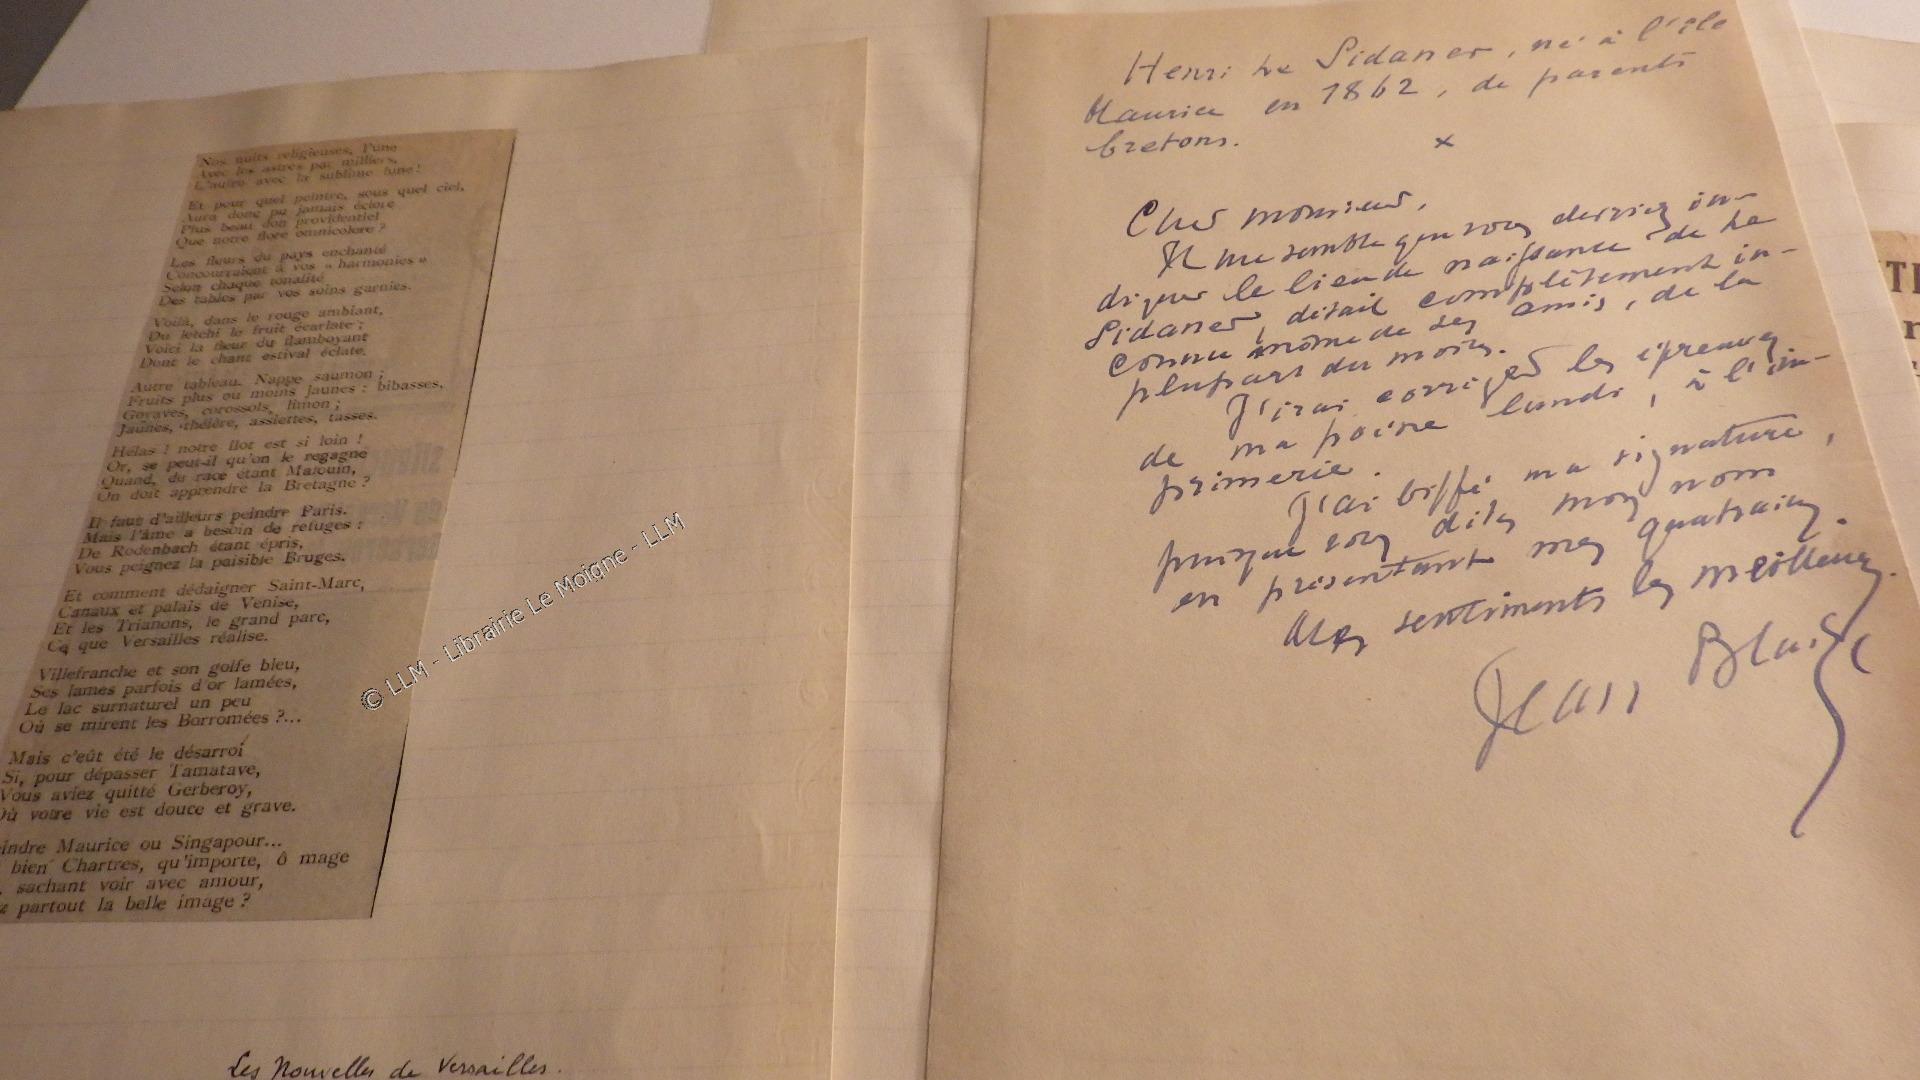 Nos nuits religieuses, l'une
Avec les astres par milliers,
L'autre avec la sublime lune !
Et pour quel peintre, sous quel ciel,
Aura donc pu jamais éclore
Plus beau don providentiel
Que notre flore omnicolore ?
Les fleurs du pays enchanté
Concourraient à vos « harmonies »
Selon chaque tonalité
Des tables par vos soins garnies.
Voilà, dans le rouge ambiant,
Du letchi le fruit écarlate ;
Voici la fleur du flamboyant
Dont le chant estival éclate.
Autre tableau. Nappe saumon ;
Fruits plus ou moins jaunes : bibasses,
Goyaves, corossols, limon ;
Jaunes, théière, assiettes, tasses.
Hélas ! notre îlot est si loin !
Or, se peut-il qu'on le regagne
Quand, du race étant Malouin,
On doit apprendre la Bretagne ?
Il faut d'ailleurs peindre Paris.
Mais l'âme a besoin de refuges :
De Rodenbach étant épris,
Vous peignez la paisible Bruges.
Et comment dédaigner Saint-Marc,
Canaux et palais de Venise,
Et les Trianons, le grand parc,
Ce que Versailles réalise.
Villefranche et son golfe bleu,
Ses lames parfois d'or lamées,
Le lac surnaturel un peu
Où se mirent les Borromées ?...
Mais c'eût été le désarroi
Si, pour dépasser Tamatave,
Vous aviez quitté Gerberoy,
Où votre vie est douce et grave.
eindre Maurice ou Singapour...
bien Chartres, qu'importe, ô mage
, sachant voir avec amour,
z partout la belle image ?
Les Nouvelles de Versailles.
Henri Le Sidaner, né à l'île
Maurice en 1862, de parents
bretons.
x
Cher monsieur,
Il me semble que vous devriez in-
diquer le lieu de naissance de Le
Sidaner, détail complètement in-
connu même de ses amis, de la
plupart du moins.
J'irai corriger les épreuves
de ma poésie lundi, à l'im-
primerie.
J'ai biffé ma signature,
puisque vous dites mon nom
en présentant mes quatrains.
Mes sentiments les meilleurs.
Jean Blaise
© LLM - Librairie Le Moigne - LLM